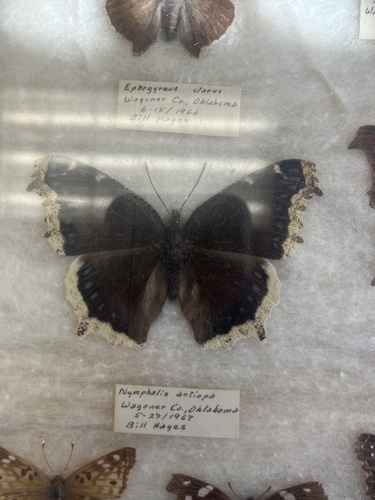 Epargyreus clarus
Wagoner Co., Oklahoma
6-15/1966
Bill Hayes
Nymphalis antiopa
Wagoner Co., Oklahoma
5-27/1967
Bill Hayes